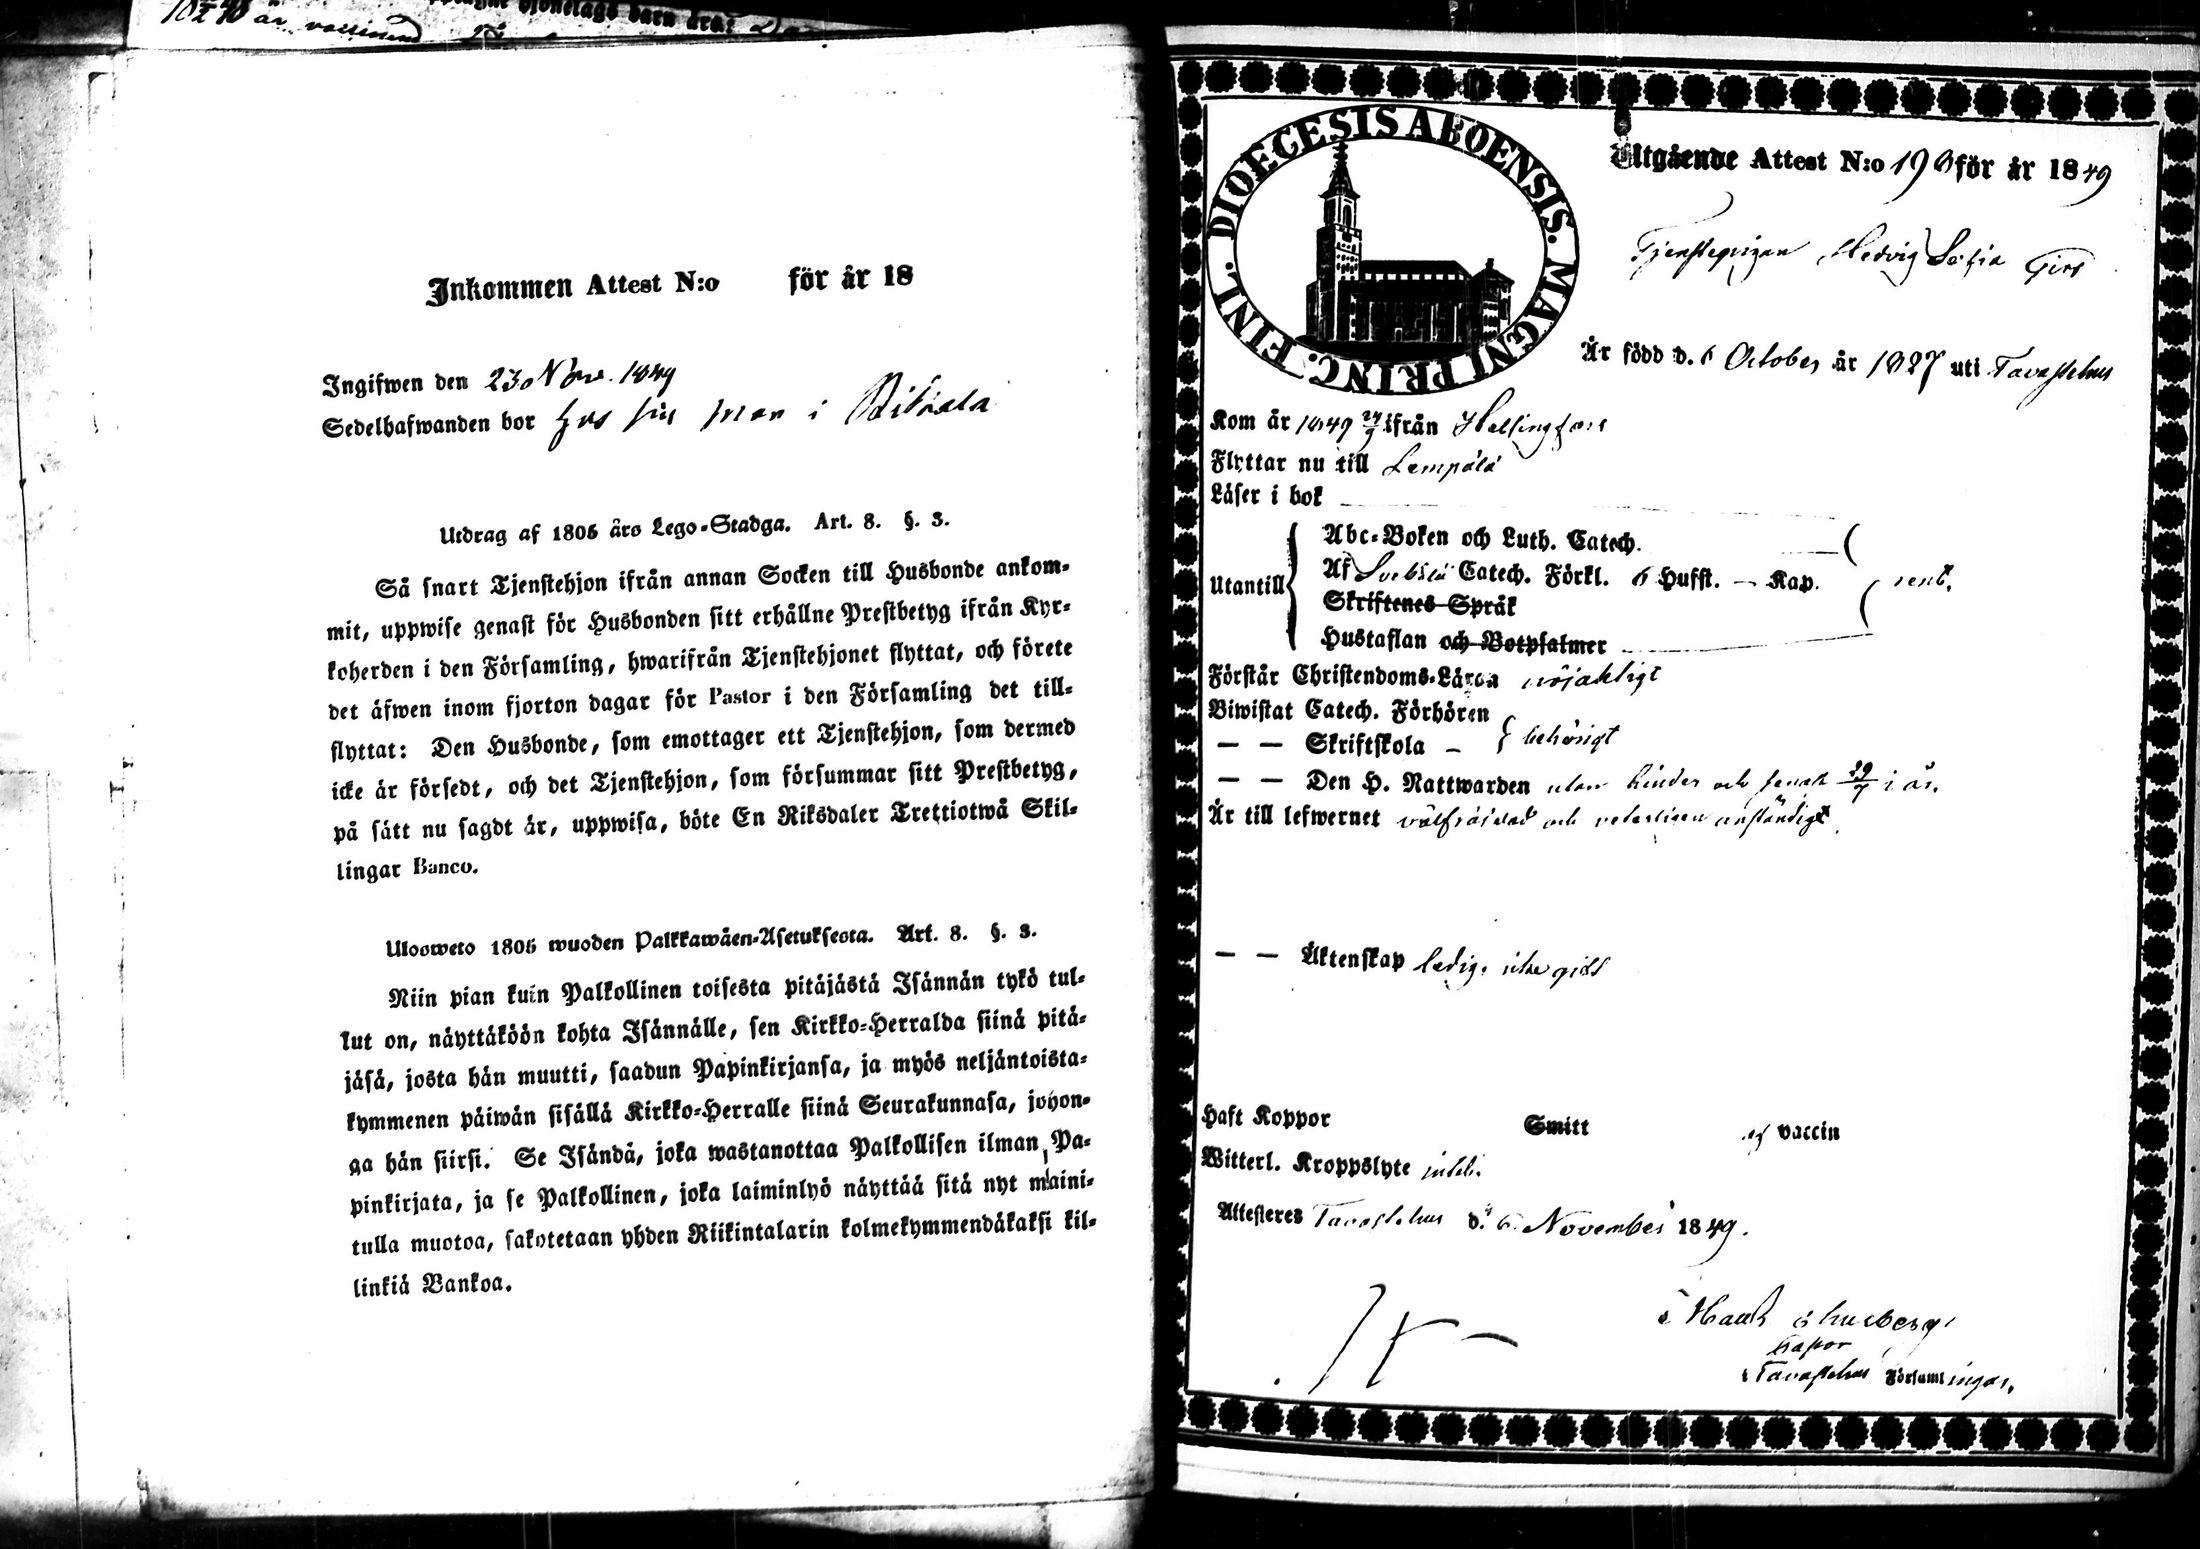 Inkommen Attest N:o för år 18
Ingifwen den 23 Nov. 1849
Sedelhafwanden bor hos sin man i
Utdrag af 1805 års Lego-Stadga. Art. 8. §. 3.
Så snart Tjenstehjon ifrån annan Socken till Husbonde ankom-
mit, uppwise genast för Husbonden sitt erhållne Prestbetyg ifrån Kyr-
koherden i den Församling, hwarifrån Tjenstehjonet flyttat, och förete
det äfwen inom fjorton dagar för Pastor i den Församling det till-
flyttat: Den Husbonde, som emottager ett Tjenstehjon, som dermed
icke är försedt, och det Tjenstehjon, som försummar sitt Prestbetyg,
på sätt nu sagdt är, uppwisa, böte En Riksdaler Trettiotwå Skil-
lingar Banco.
Ulosweto 1805 wuoden Palkkawäen-Asetuksesta. Art. 8. §. 3.
Niin pian kuin Palkollinen toisesta pitäjästä Isännän tykö tul-
lut on, näyttäköön kohta Isännälle, sen Kirkko-Herralda siinä pitä-
jäsä, josta hän muutti, saadun Papinkirjansa, ja myös neljäntoista-
kymmenen päiwän sisällä Kirkko-Herralle siinä Seurakunnasa, johon-
ga hän siirsi. Se Isändä, joka wastanottaa Palkollisen ilman Pa-
pinkirjata, ja se Palkollinen, joka laiminlyö näyttää sitä nyt maini-
tulla muotoa, sakotetaan yhden Riikintalarin kolmekymmendäkaksi kil-
linkiä Bankoa.
DIOECESIS ABOENSIS. MAGNI PRINC. FINL.
Utgående Attest N:o 196 för år 1849
Tjenstepigan Hedvig Sofia
Är född d. 6 October år 1827 uti Tavastehus
Kom år 1849 24/9 ifrån Helsingfors
Flyttar nu till Lempälä
Läser i bok
Abc-Boken och Luth. Catech.
Utantill Af Svebilii Catech. Förkl. 6 Hufst. – Kap. rent.
Skriftenes Språk
Hustaflan och Botpsalmer
Förstår Christendoms-Läran nöjaktigt
Biwistat Catech. Förhören
— — Skriftskola – behörigt
— — Den H. Nattwarden utan hinder och senast 29/7 i år.
Är till lefwernet välfräjdad och anständigt
— — Äktenskap ledig, icke gift
Haft Koppor Smitt af vaccin
Witterl. Kroppslyte
Attesteres Tavastehus d. 6 November 1849.
Tavastehus Församlingar.